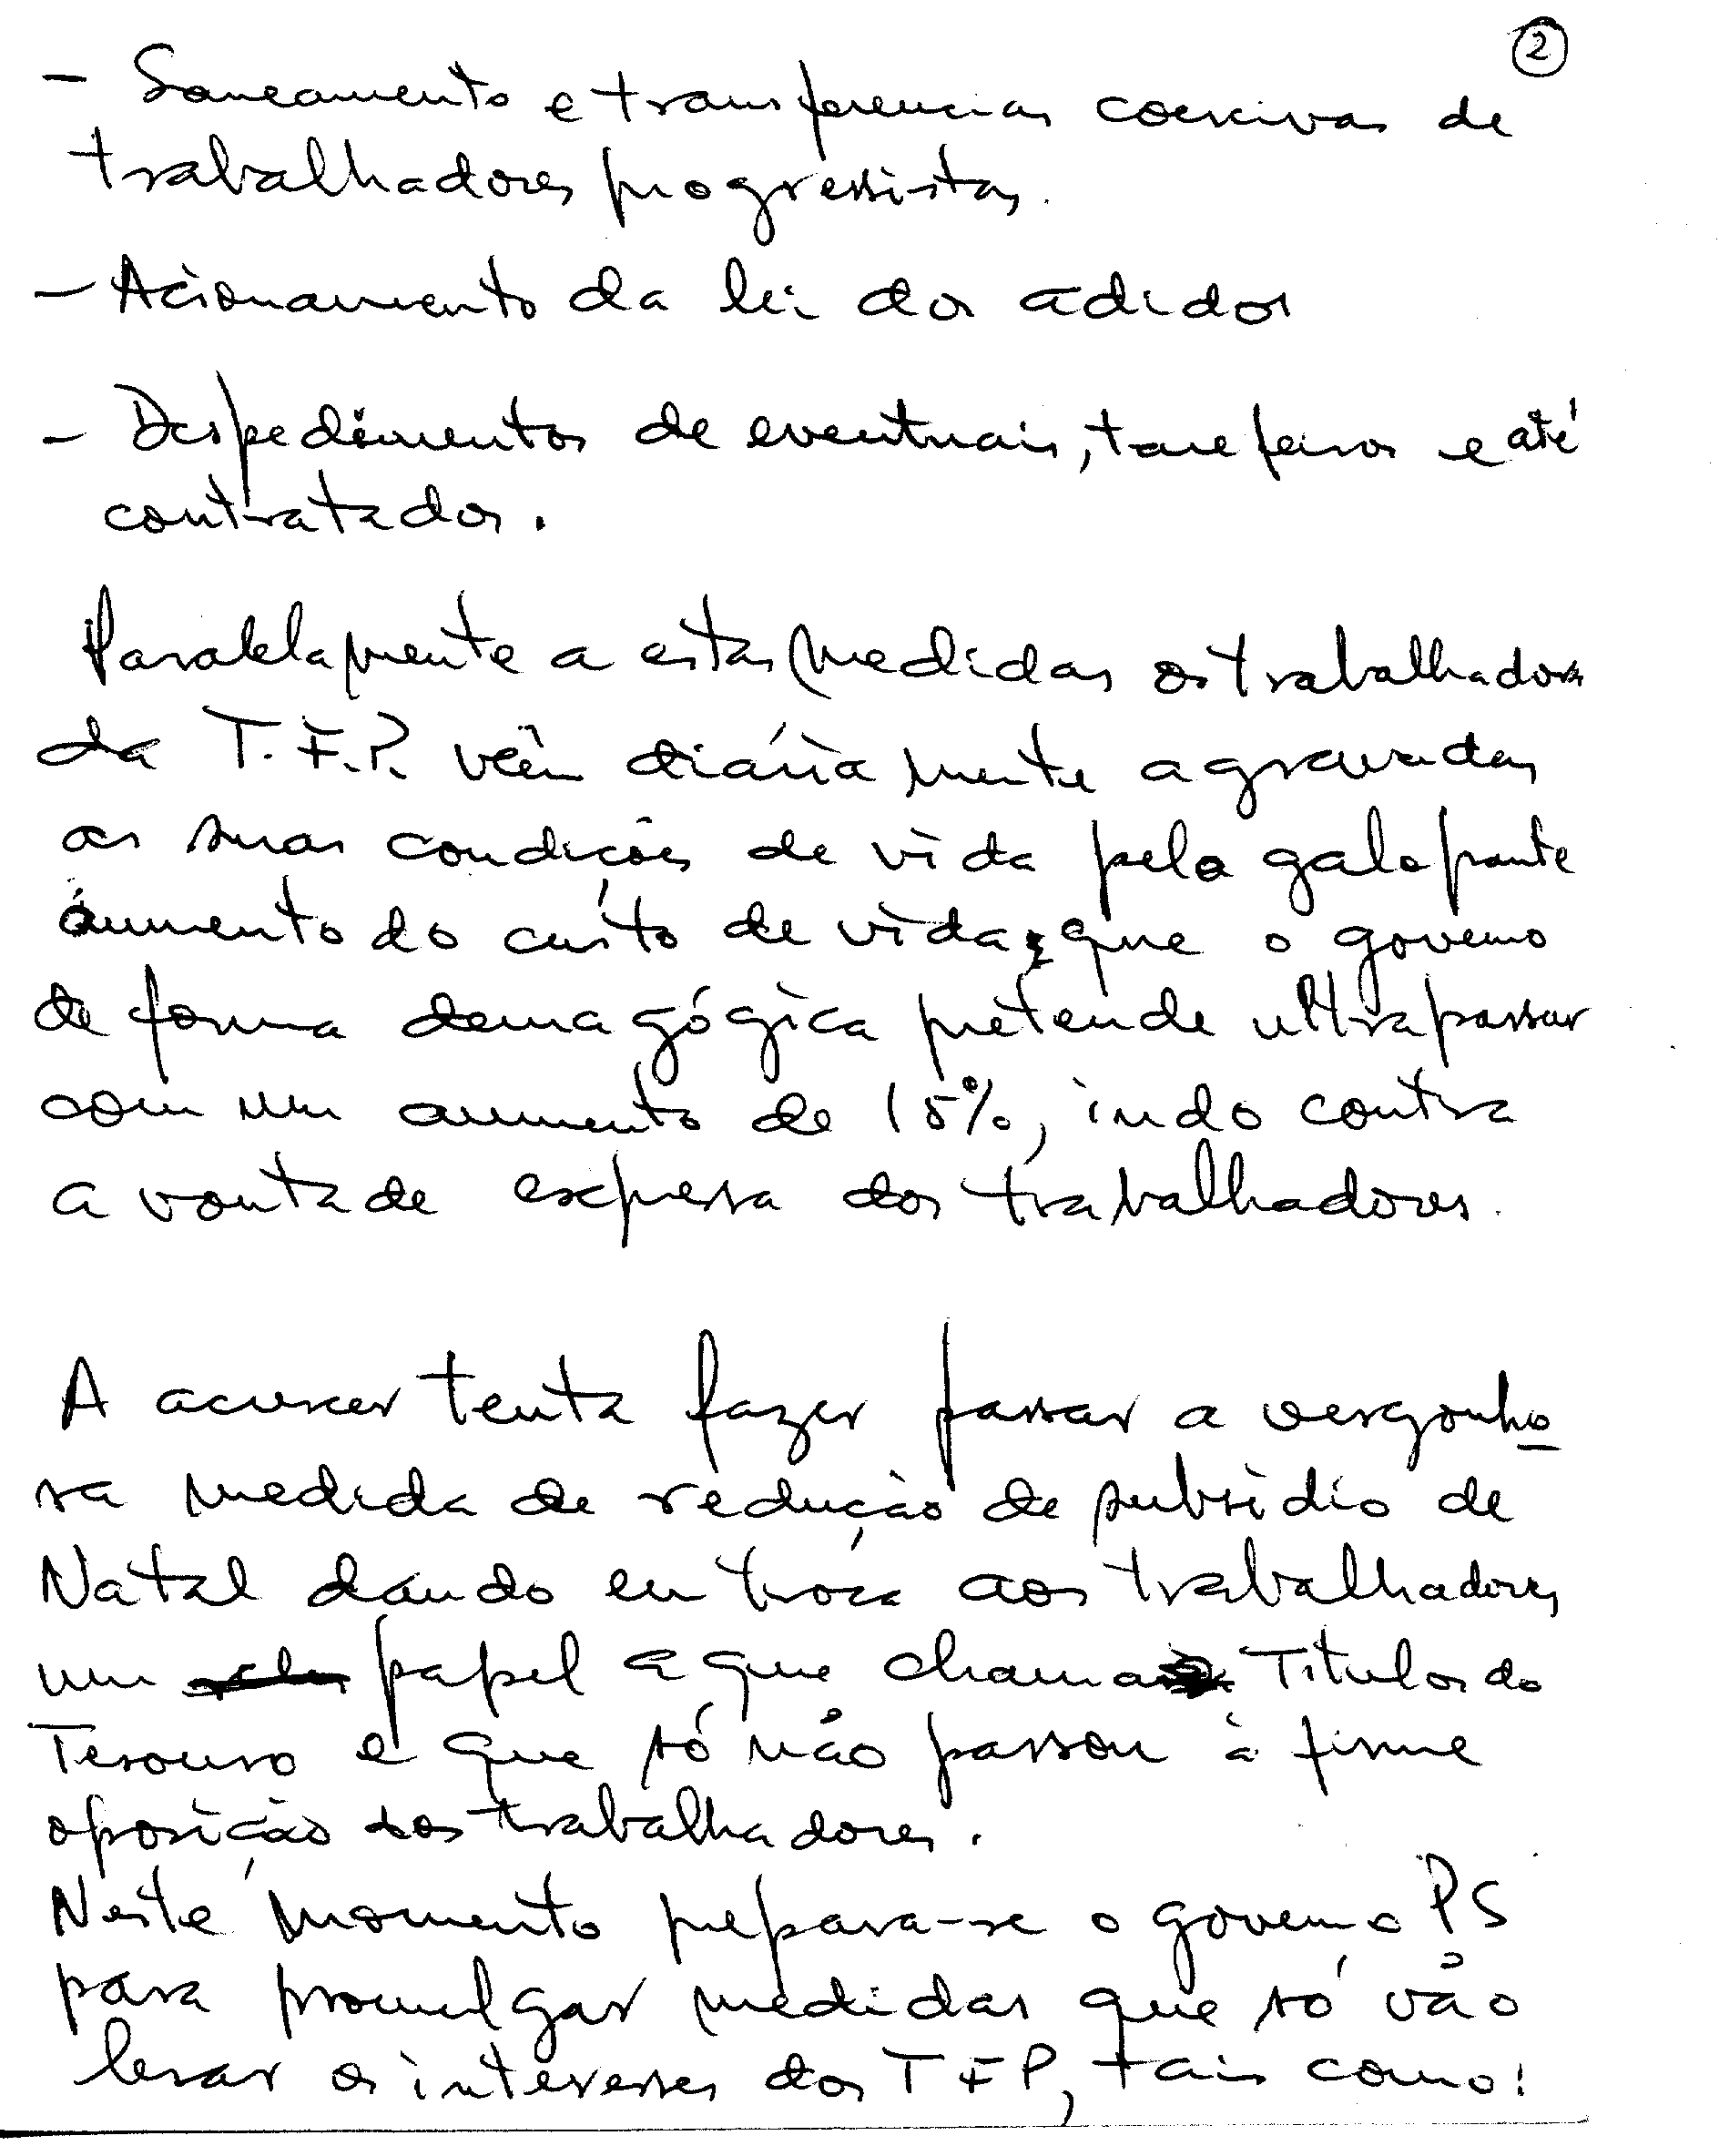 2
- Saneamento e transferencias coercivas de
trabalhadores progressistas.
- Acionamento da lei dos adidos
- Despedimentos de eventuais, tarefeiros e até
contratados.
Paralelamente a estas medidas os trabalhadores
da T.F.P. vêm diáriamente agravadas
as suas condições de vida pelo galopante
aumento do custo de vida, que o governo
de forma demagógica pretende ultrapassar
com um aumento de 15%, indo contra
a vontade expressa dos trabalhadores.
A acrescer tenta fazer passar a vergonho
sa medida de redução de subsidio de
Natal dando em troca aos trabalhadores
um papel a que chama Titulos do
Tesouro e que só não passou à firme
oposição dos trabalhadores.
Neste momento prepara-se o governo PS
para promulgar medidas que só vão
lesar os interesses dos TFP, tais como: